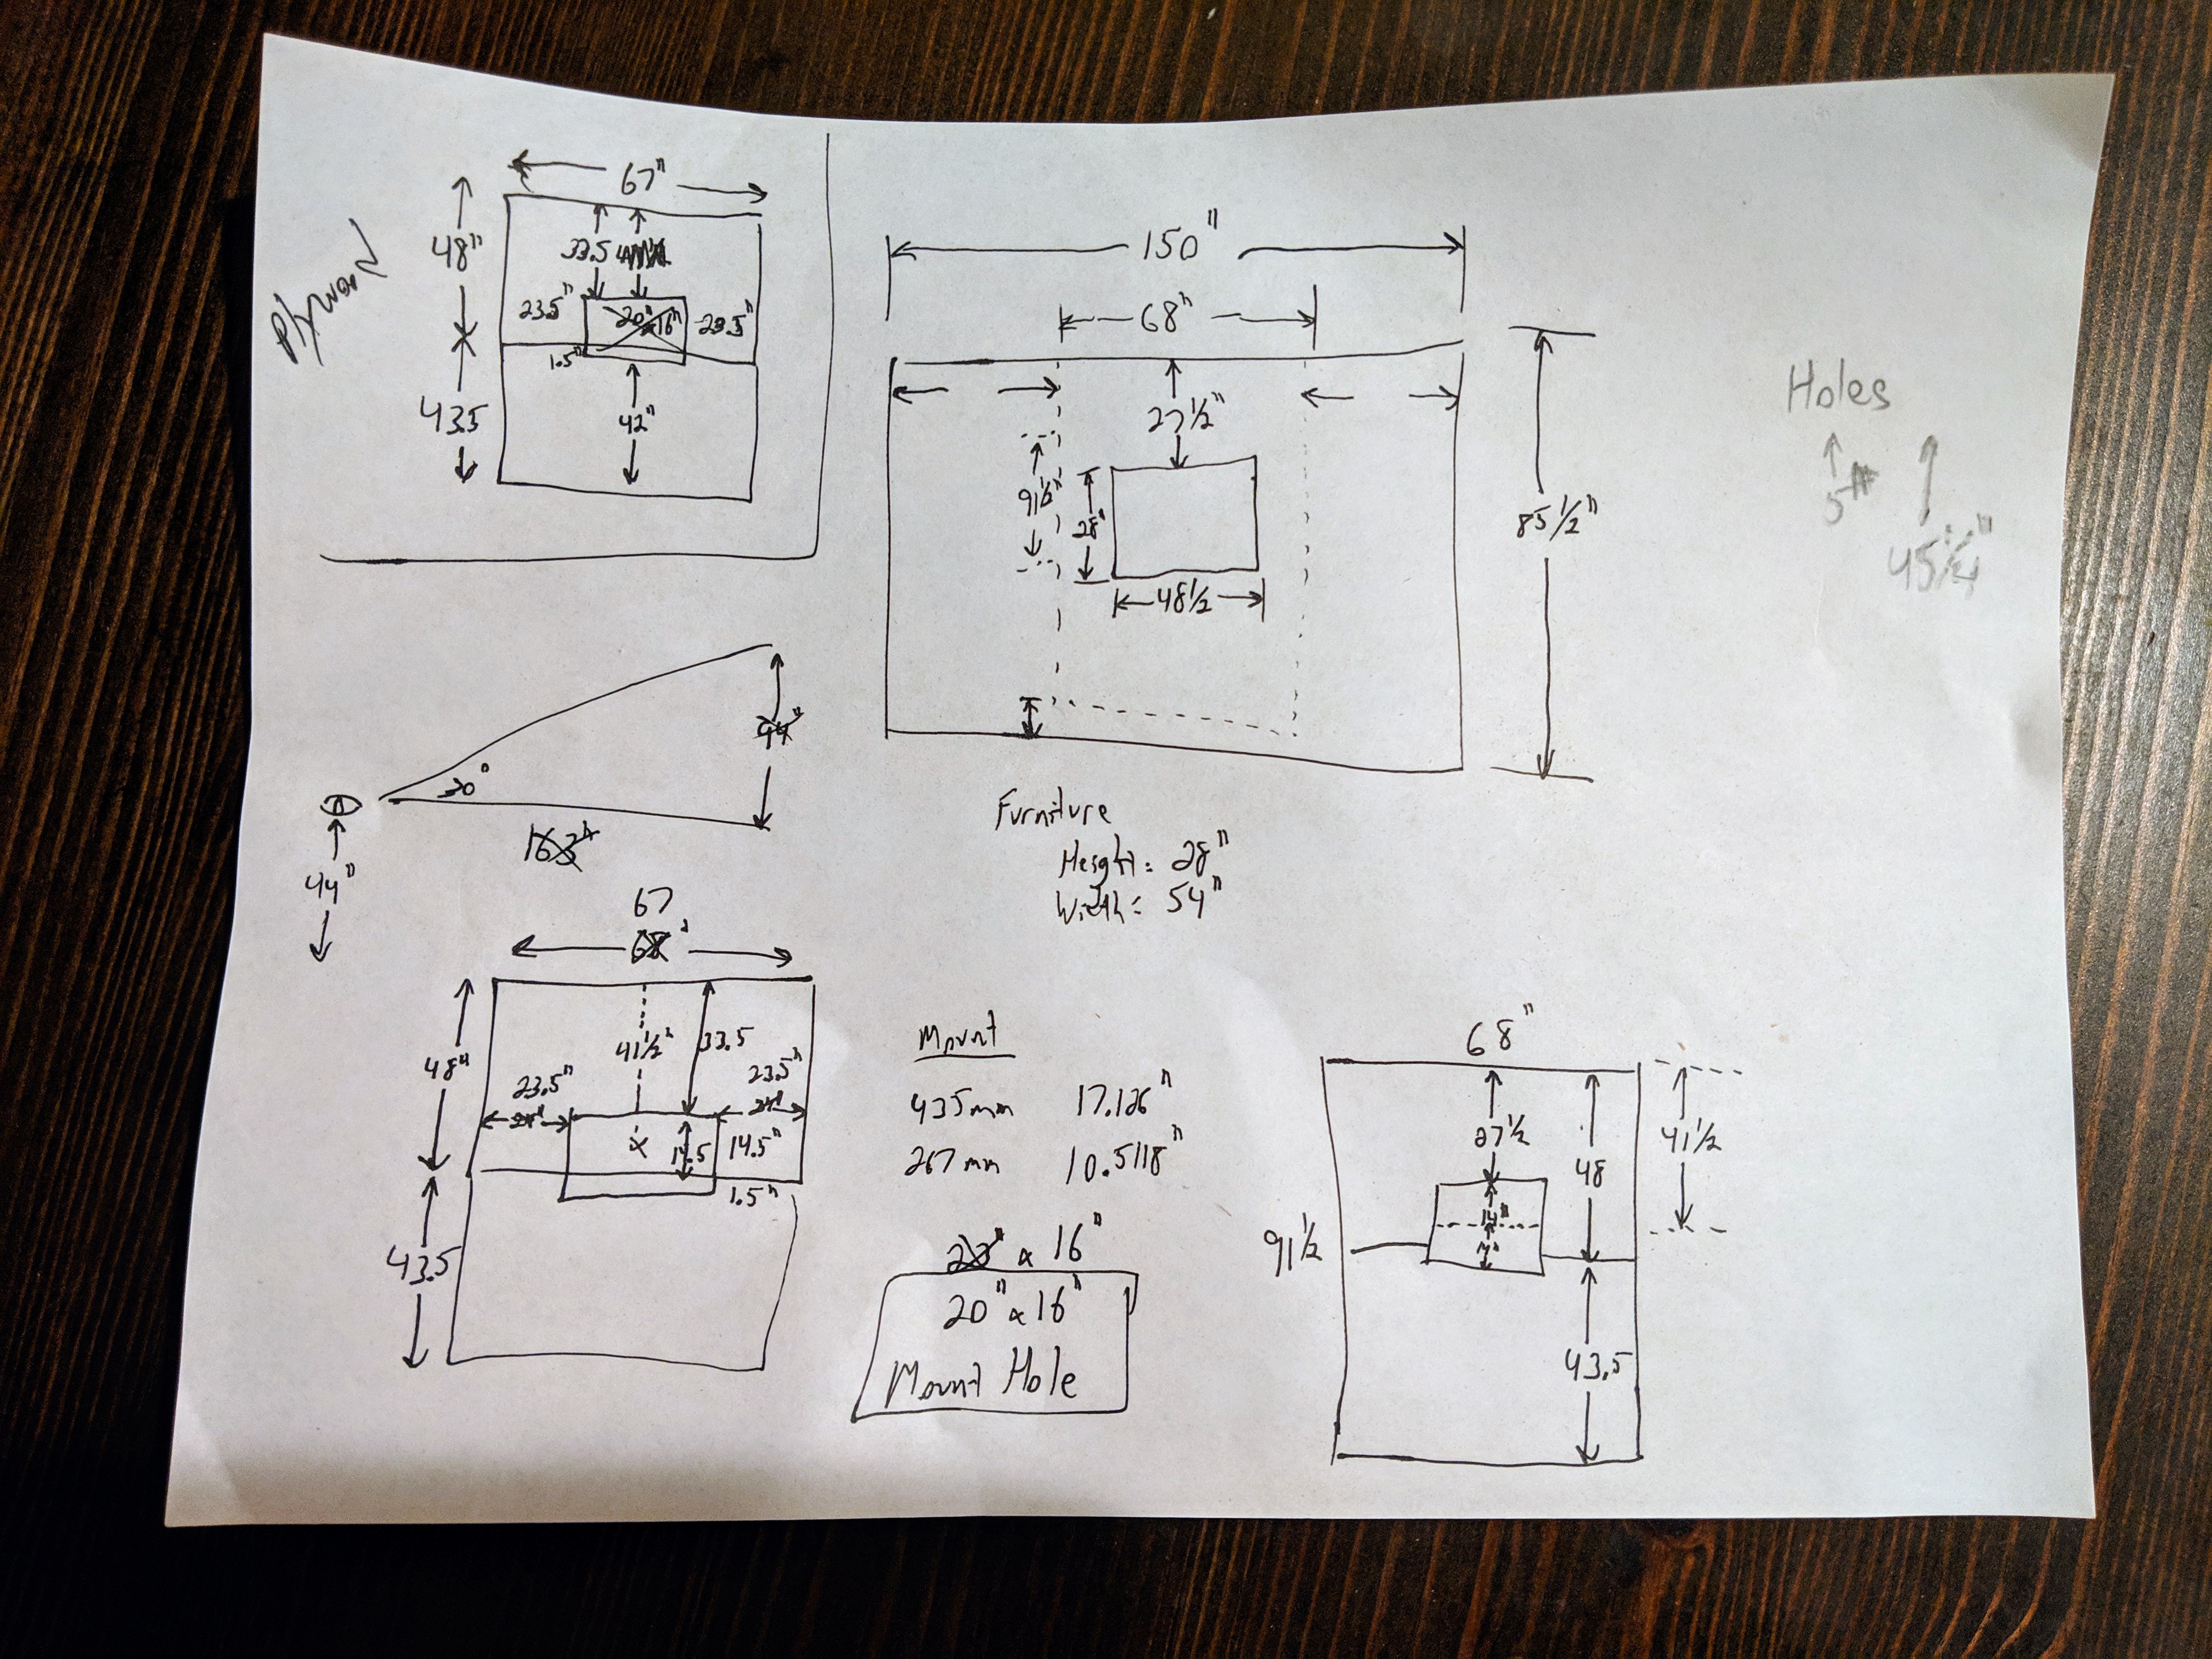 67"
48"
33.5
23.5"
20" x 16"
23.5"
1.5"
43.5
42"
150"
68"
27 1/2"
91 1/2"
28"
48 1/2
85 1/2"
Holes
5"
45 1/4"
30°
94"
163"
44"
Furniture
Height: 28"
Width: 54"
67
68"
48"
41 1/2"
33.5
23.5"
23.5"
24"
24"
14.5
14.5"
1.5"
43.5
Mount
435mm 17.126"
267mm 10.5118"
x 16"
20" x 16"
Mount Hole
68"
27 1/2
48
41 1/2
14"
91 1/2
43.5